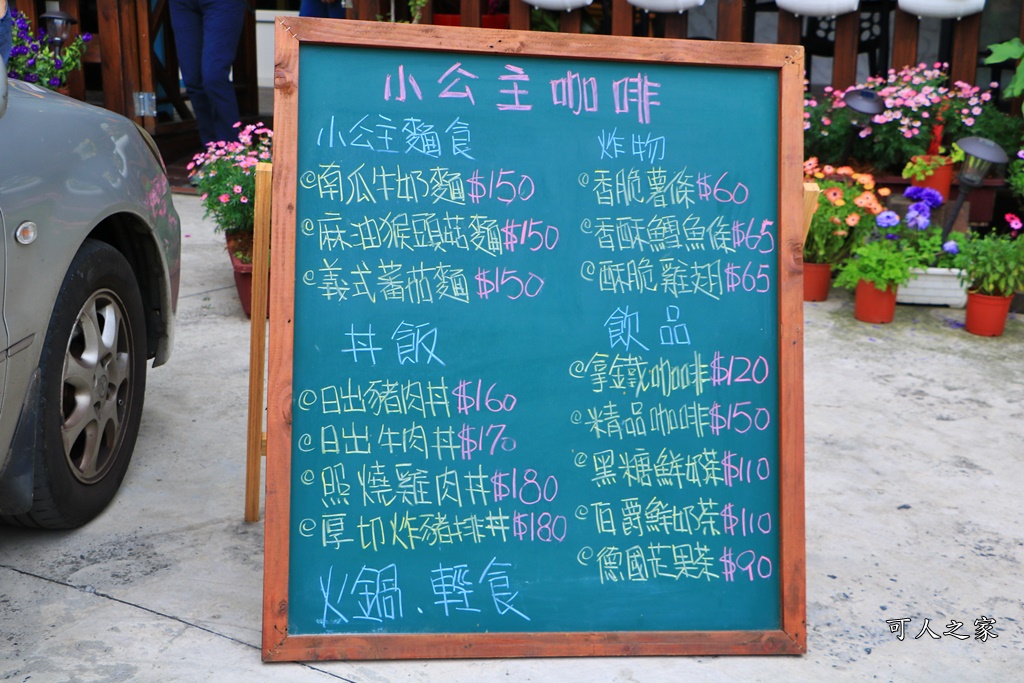 小公主咖啡
小公主麵食
南瓜牛奶麵$150
麻油猴頭菇麵$150
義式蕃茄麵$150
丼飯
日出豬肉丼$160
日出牛肉丼$170
照燒雞肉丼$180
厚切炸豬排丼$180
火鍋、輕食
炸物
香脆薯條$60
香酥鱈魚條$65
酥脆雞翅$65
飲品
拿鐵咖啡$120
精品咖啡$150
黑糖鮮奶茶$110
伯爵鮮奶茶$110
德國芒果茶$90
可人之家